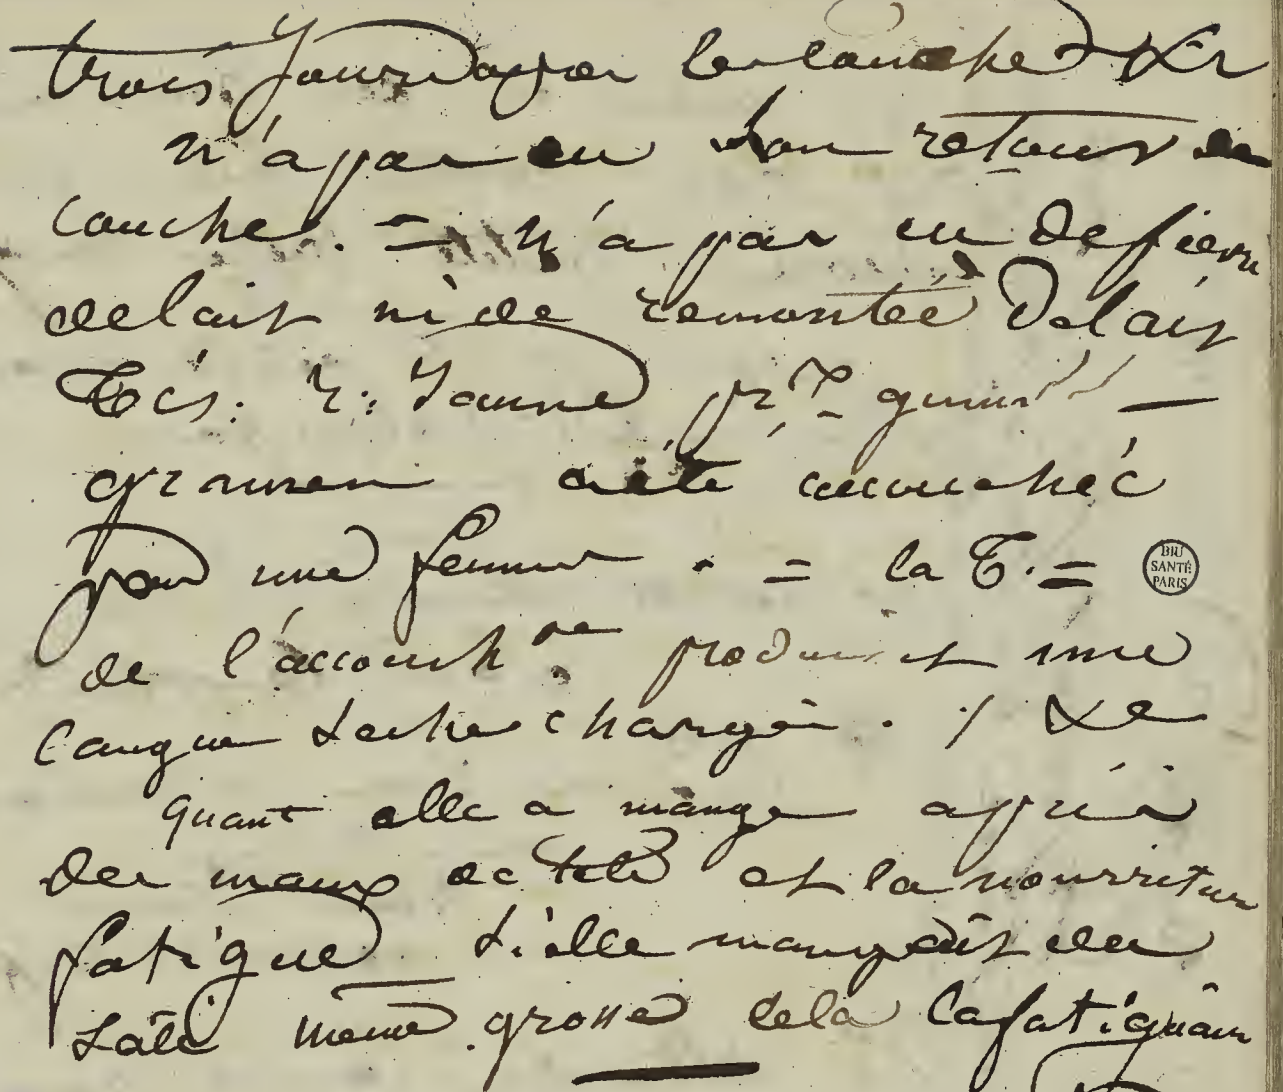 trois jours apres les couches Xr
n'a pas eu son retour de
couche. = n'a pas eu de fievre
de lait ni de remontée de lait
T is. r: jaune pr quin —
grossen a été accouchée
par une femme . = la T. =
de l'accouchre produit une
langue seche chargé . / Xe
quant elle a mangé appuié
des maux de tete et la nourriture
fatigue si elle mangeait du
salé meme grosse cela la fatiguain
BIU
SANTÉ
PARIS